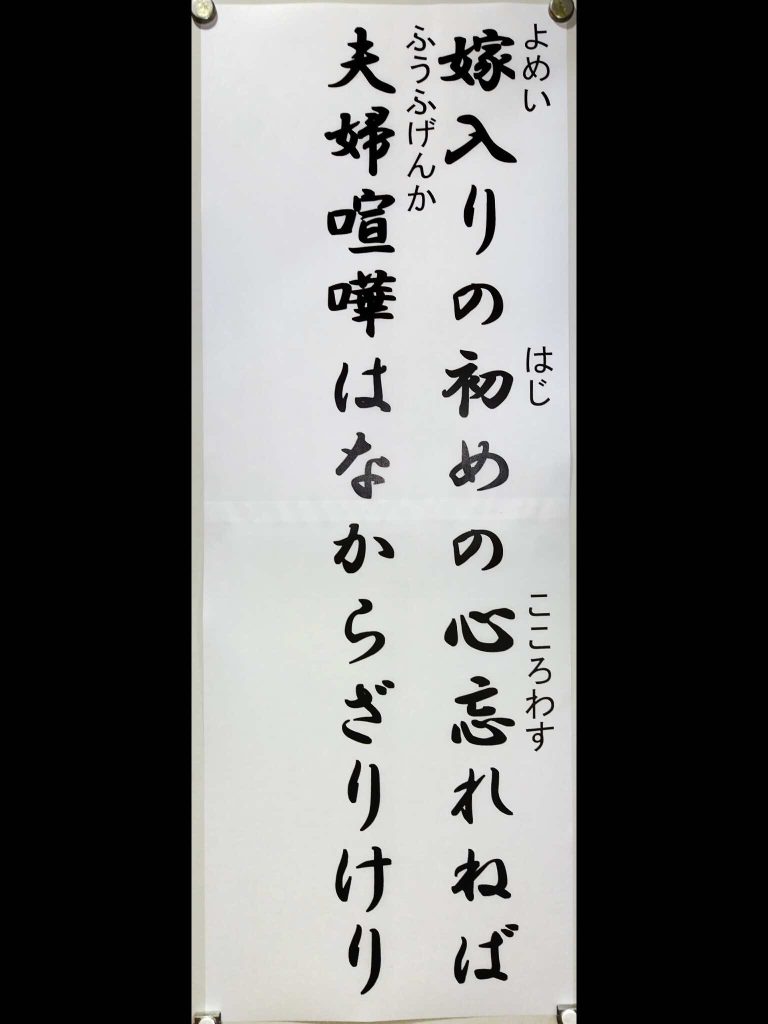 嫁入りの初めの心忘れねば
よめい はじ こころわす
夫婦喧嘩はなからざりけり
ふうふげんか